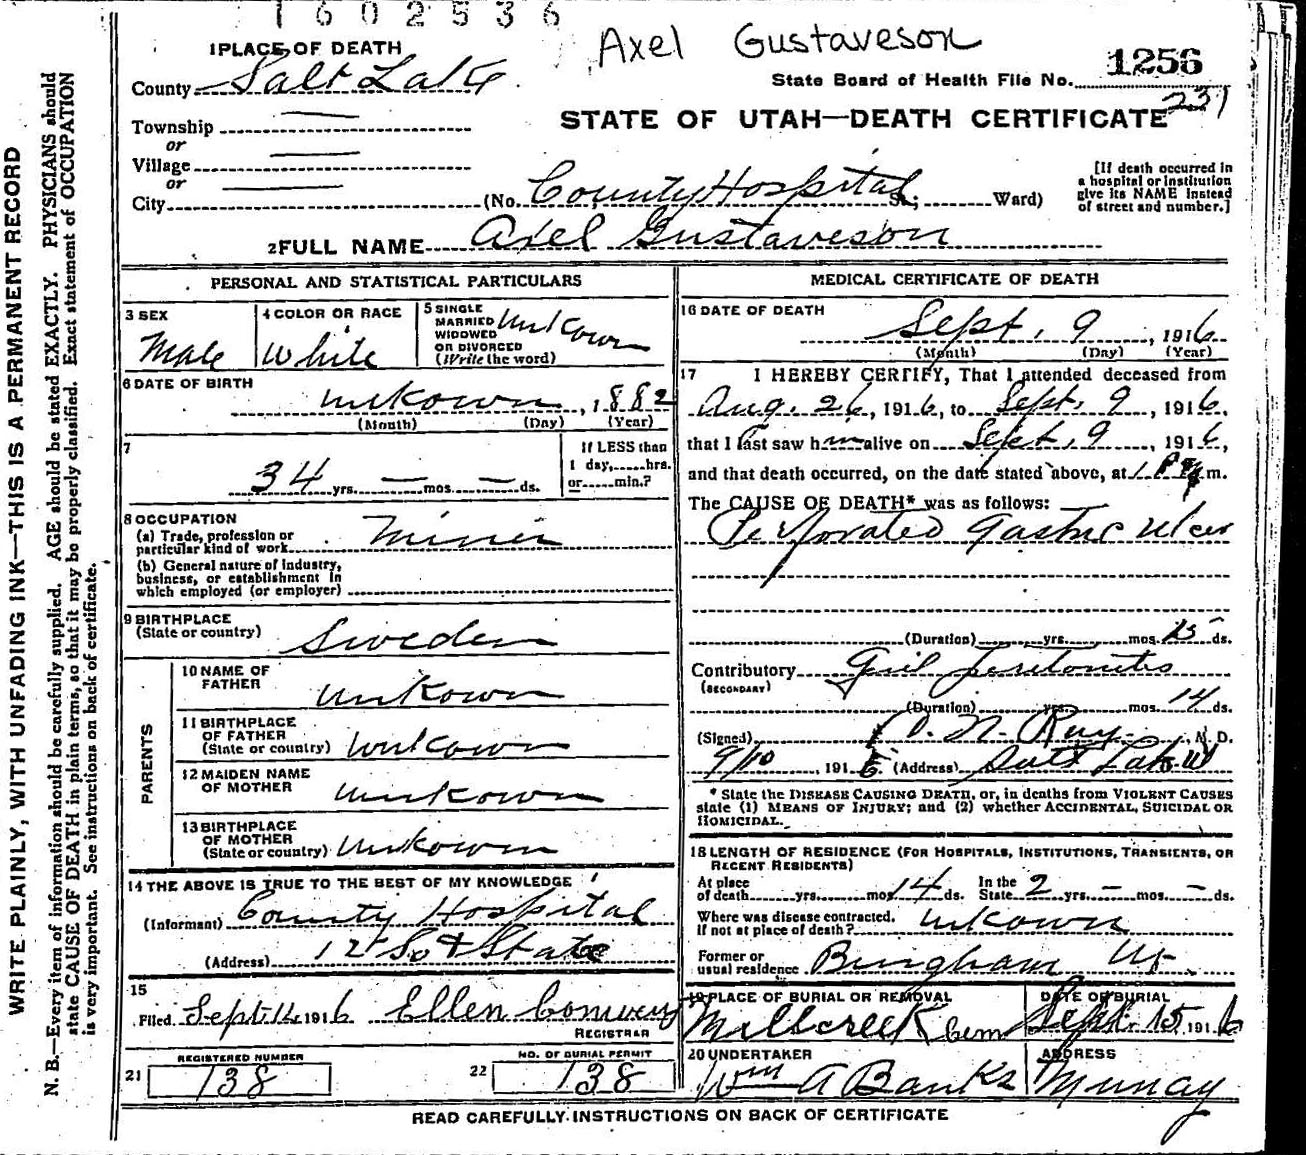 1602536
Axel Gustaveson
1 PLACE OF DEATH
County Salt Lake
State Board of Health File No. 1256
231
STATE OF UTAH—DEATH CERTIFICATE
Township
or
Village
or
City (No. County Hospital St; Ward)
[If death occurred in
a hospital or institution
give its NAME instead
of street and number.]
2 FULL NAME Axel Gustaveson
PERSONAL AND STATISTICAL PARTICULARS
3 SEX
Male
4 COLOR OR RACE
White
5 SINGLE
MARRIED
WIDOWED
OR DIVORCED
(Write the word)
Unkown
6 DATE OF BIRTH
unkown, 1882
(Month) (Day) (Year)
7
34 yrs. — mos. — ds.
If LESS than
1 day, hrs.
or min.?
8 OCCUPATION
(a) Trade, profession or
particular kind of work Miner
(b) General nature of industry,
business, or establishment in
which employed (or employer)
9 BIRTHPLACE
(State or country) Sweden
PARENTS
10 NAME OF
FATHER Unkown
11 BIRTHPLACE
OF FATHER
(State or country) Unkown
12 MAIDEN NAME
OF MOTHER Unkown
13 BIRTHPLACE
OF MOTHER
(State or country) Unkown
14 THE ABOVE IS TRUE TO THE BEST OF MY KNOWLEDGE
(Informant) County Hospital
(Address) 12 So & State
15
Filed Sept 14 1916 Ellen Conway
REGISTRAR
REGISTERED NUMBER
21 138
NO. OF BURIAL PERMIT
22 138
MEDICAL CERTIFICATE OF DEATH
16 DATE OF DEATH
Sept. 9, 1916
(Month) (Day) (Year)
17 I HEREBY CERTIFY, That I attended deceased from
Aug. 26, 1916, to Sept. 9, 1916,
that I last saw him alive on Sept. 9, 1916,
and that death occurred, on the date stated above, at 1 P m.
The CAUSE OF DEATH* was as follows:
Perforated Gastric Ulcer
(Duration) yrs. mos. 15 ds.
Contributory Genl Peritonitis
(SECONDARY)
(Duration) yrs. mos. 14 ds.
(Signed) O. N. Ray, M. D.
9/10, 1916 (Address) Salt Lake
* State the DISEASE CAUSING DEATH, or, in deaths from VIOLENT CAUSES
state (1) MEANS OF INJURY; and (2) whether ACCIDENTAL, SUICIDAL OR
HOMICIDAL.
18 LENGTH OF RESIDENCE (FOR HOSPITALS, INSTITUTIONS, TRANSIENTS, OR
RECENT RESIDENTS)
At place
of death yrs. mos 14 ds. In the
State 2 yrs. — mos. — ds.
Where was disease contracted,
if not at place of death? Unkown
Former or
usual residence Bingham Ut.
19 PLACE OF BURIAL OR REMOVAL
Millcreek Cem
DATE OF BURIAL
Sept. 15 1916
20 UNDERTAKER
Wm A Banks
ADDRESS
Murray
READ CAREFULLY INSTRUCTIONS ON BACK OF CERTIFICATE
WRITE PLAINLY, WITH UNFADING INK—THIS IS A PERMANENT RECORD
N. B.—Every item of information should be carefully supplied. AGE should be stated EXACTLY. PHYSICIANS should
state CAUSE OF DEATH in plain terms, so that it may be properly classified. Exact statement of OCCUPATION
is very important. See instructions on back of certificate.